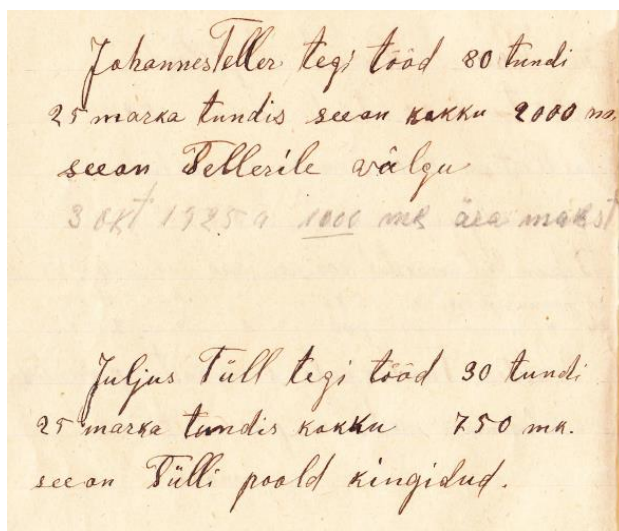 Johannes Teller tegi tööd 80 tundi
25 marka tundis seean kokku 2000 mk.
seean Tellerile wälgu
3 okt 1925 a 1000 mk ära makst
Juljus Tüll tegi tööd 30 tundi
25 marka tundis kokku 750 mk.
seean Tülli poold kingidud.